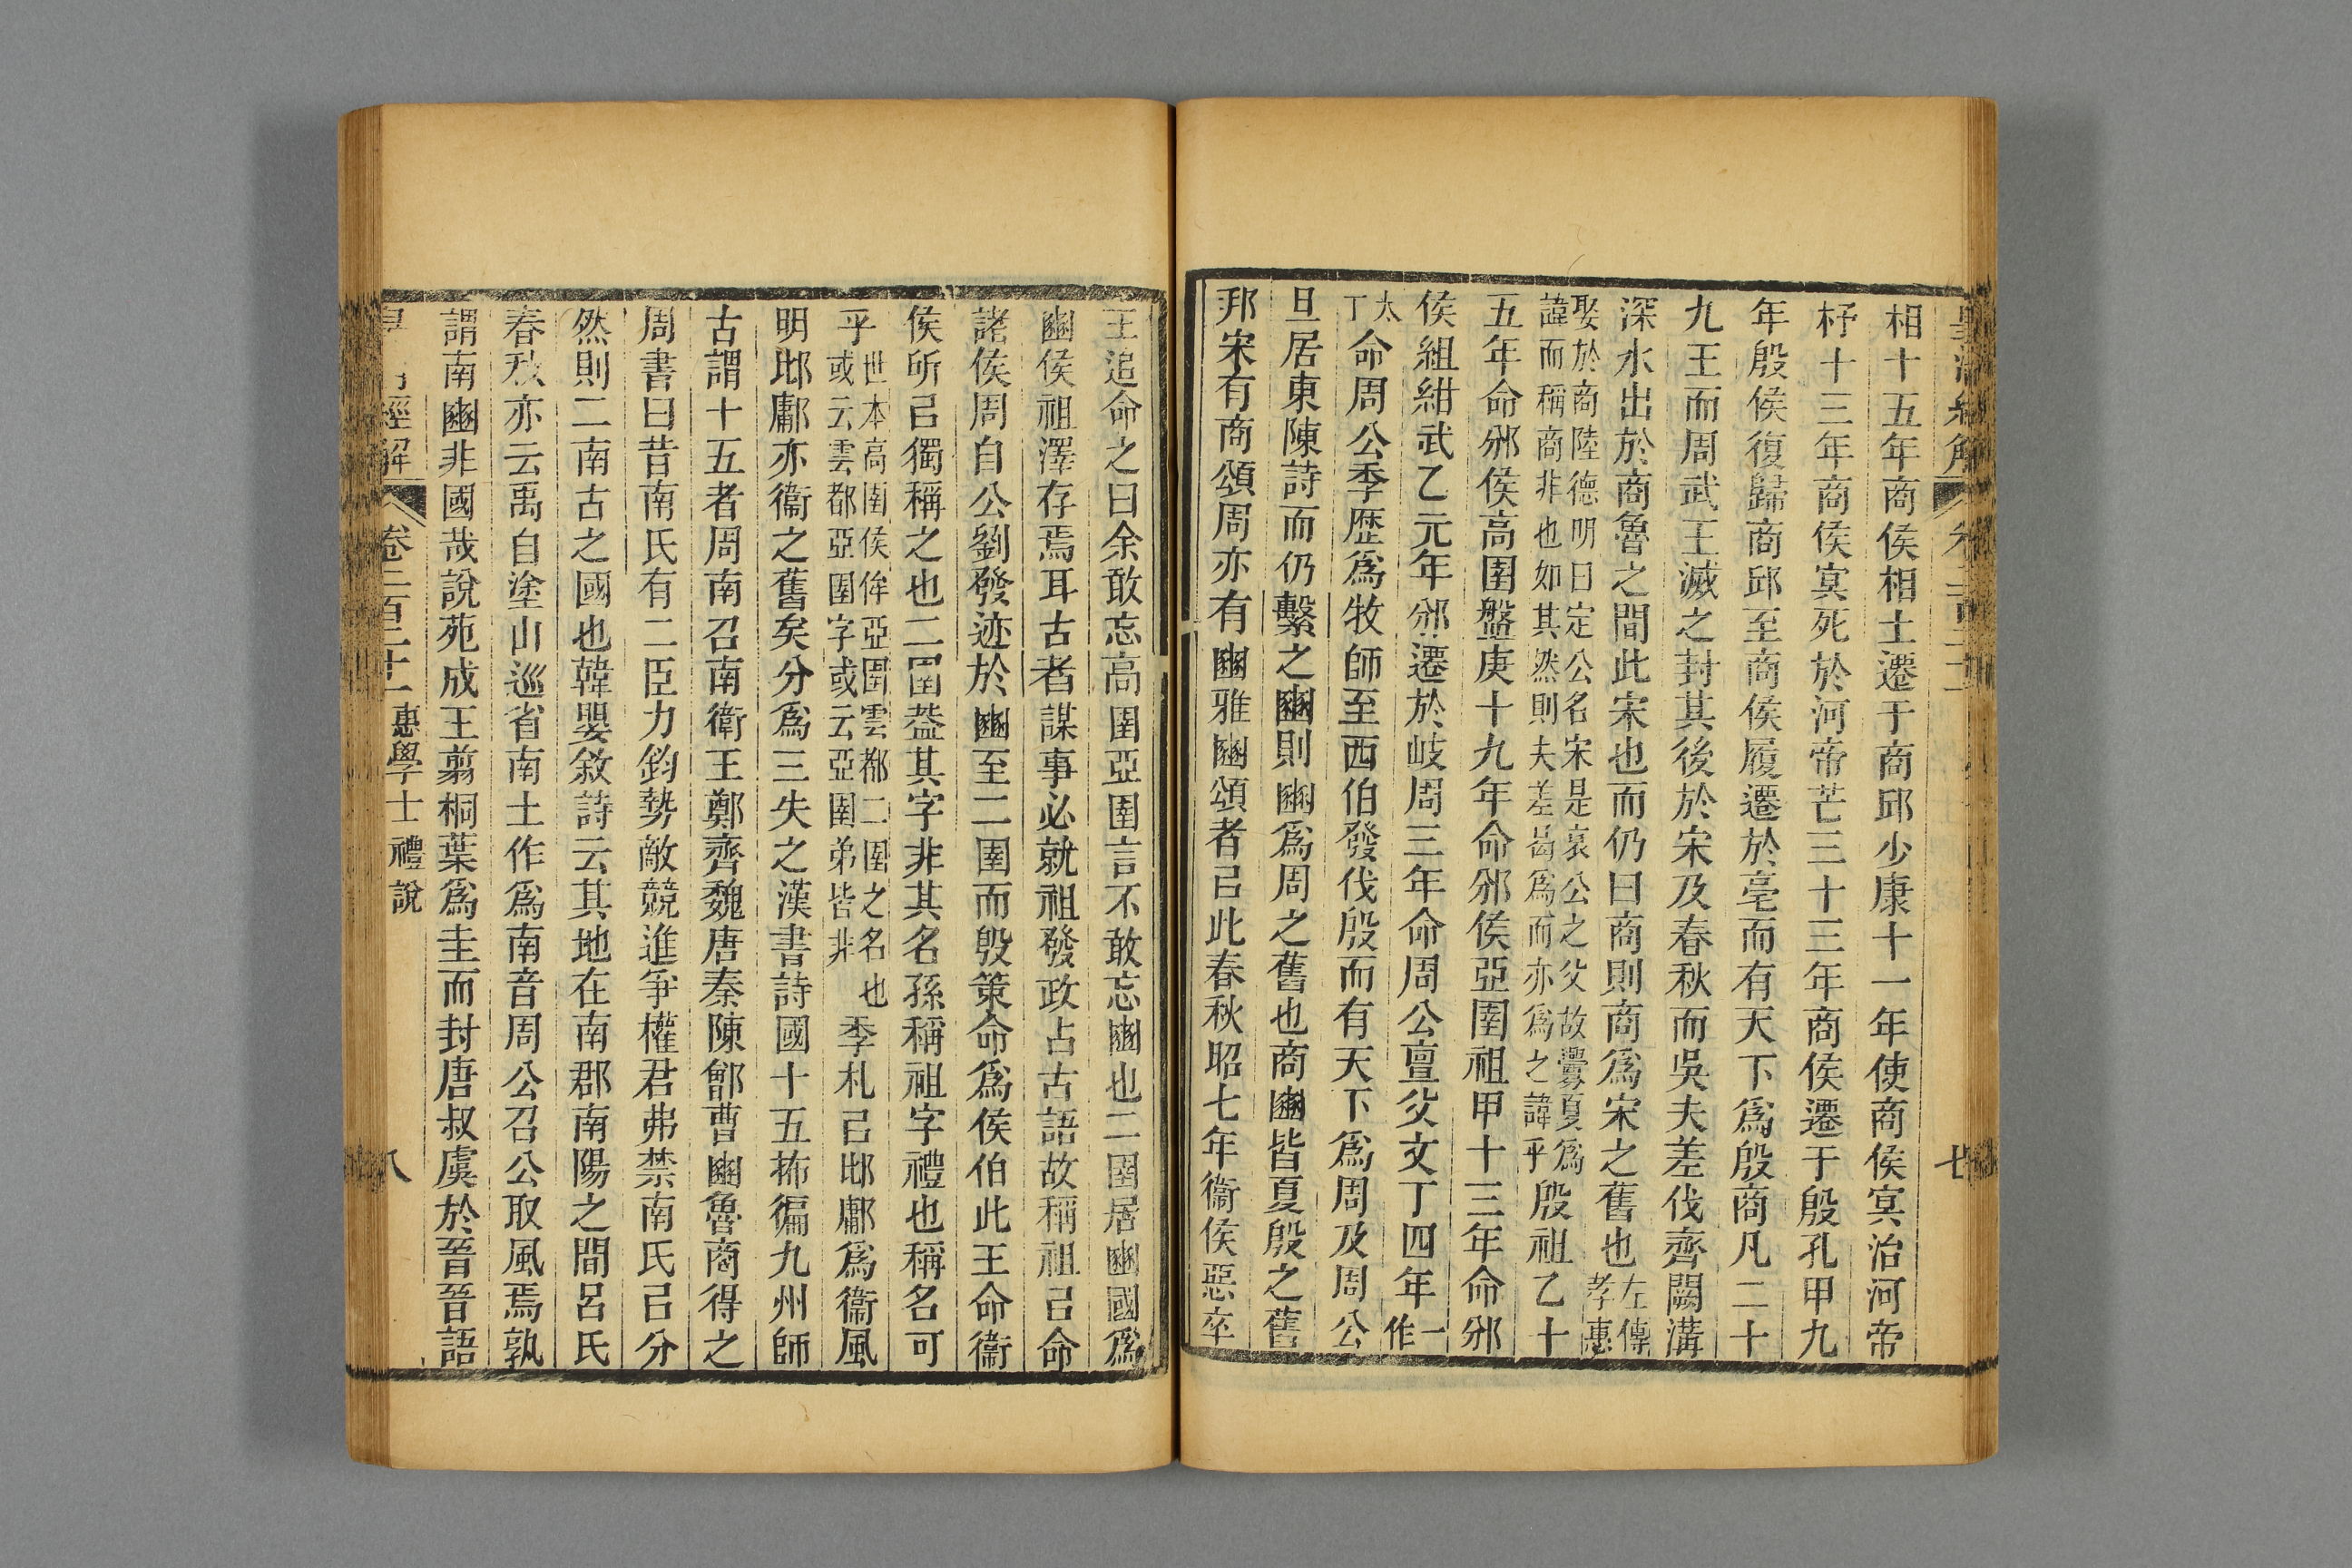 相十五年商侯相土遷于商邱少康十一年使商侯冥治河帝
杼十三年商侯冥死於河帝芒三十三年商侯遷于殷孔甲九
年殷侯復歸商邱至商侯履遷於亳而有天下爲殷商凡二十
九王而周武王滅之封其後於宋及春秋而吳夫差伐齊闕溝
深水出於商魯之間此宋也而仍曰商則商爲宋之舊也左傳
孝惠
娶於商陸德明曰定公名宋是哀公之父故釁夏爲
諱而稱商非也如其然則夫差曷爲而亦爲之諱乎殷祖乙十
五年命邠侯高圉盤庚十九年命邠侯亞圉祖甲十三年命邠
侯組紺武乙元年邠遷於岐周三年命周公亶父文丁四年一
作
太
丁命周公季歷爲牧師至西伯發伐殷而有天下爲周及周公
旦居東陳詩而仍繫之豳則豳爲周之舊也商豳皆夏殷之舊
邦宋有商頌周亦有豳雅豳頌者㠯此春秋昭七年衞侯惡卒
七
王追命之曰余敢忘高圉亞圉言不敢忘豳也二圉居豳國爲
豳侯祖澤存焉耳古者謀事必就祖發政占古語故稱祖㠯命
諸侯周自公劉發迹於豳至二圉而殷策命爲侯伯此王命衞
侯所㠯獨稱之也二圉葢其字非其名孫稱祖字禮也稱名可
乎世本高圉侯侔亞圉雲都二圉之名也
或云雲都亞圉字或云亞圉弟皆非季札㠯邶鄘爲衞風
明邶鄘亦衞之舊矣分爲三失之漢書詩國十五抪徧九州師
古謂十五者周南召南衛王鄭齊魏唐秦陳鄶曹豳魯商得之
周書曰昔南氏有二臣力鈞勢敵競進爭權君弗禁南氏㠯分
然則二南古之國也韓嬰敘詩云其地在南郡南陽之間呂氏
春秋亦云禹自塗山巡省南土作爲南音周公召公取風焉孰
謂南豳非國哉說苑成王翦桐葉爲圭而封唐叔虞於晉晉語
經解 卷二百二十一 惠學士禮說 八